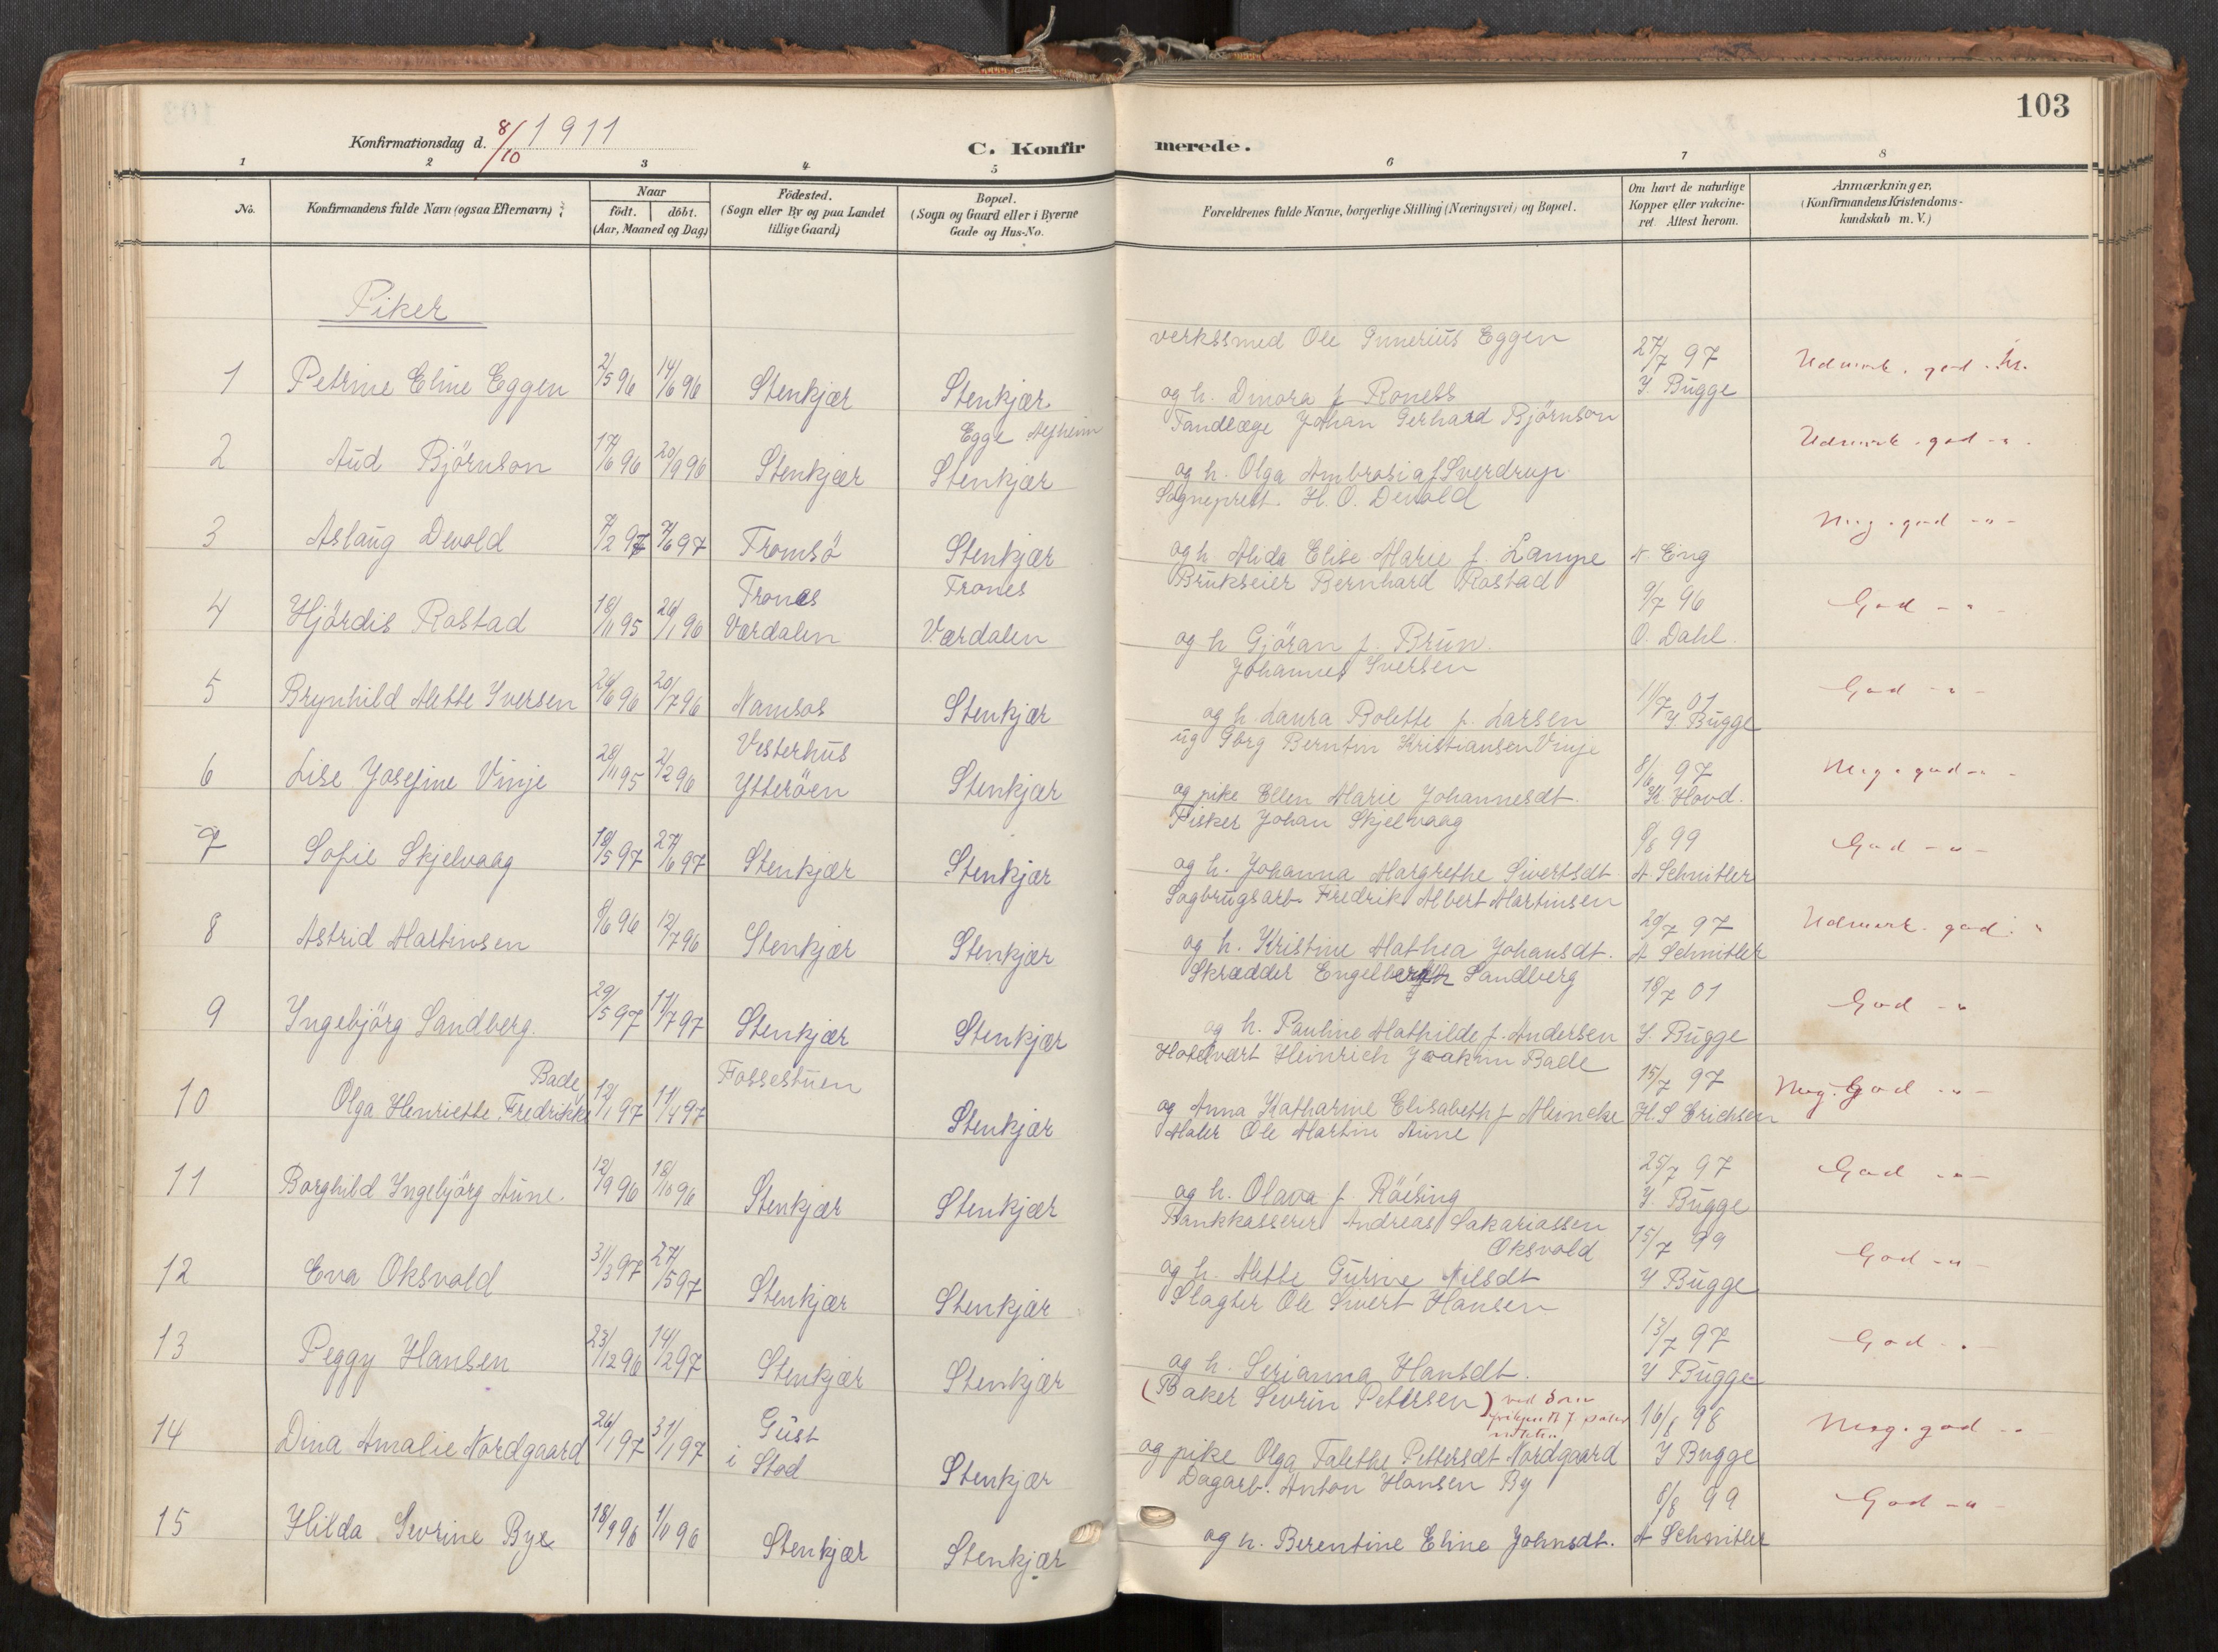 103
Konfirmationsdag d. 8/10 1911
C. Konfirmerede.
1 2 3 4 5 6 7 8
No.
Konfirmandens fulde Navn (ogsaa Efternavn)
Naar født. døbt. (Aar, Maaned og Dag)
Fødested. (Sogn eller By og paa Landet tillige Gaard)
Bopæl. (Sogn og Gaard eller i Byerne Gade og Hus-No.
Forældrenes fulde Navne, borgerlige Stilling (Næringsvei) og Bopæl.
Om havt de naturlige Kopper eller vakcineret Attest herom.
Anmærkninger, (Konfirmandens Kristendomskundskab m. V.)
Piker
verkssmed Ole Gunerius Eggen
1 Petrine Eline Eggen 2/5 96 14/6 96 Stenkjær Stenkjær og h. Dinora f Roness 27/7 97 I. Bugge Udmerk. god
Egge Alfheim
Tandlæge Johan Gerhard Björnson
2 Aud Björnson 17/6 96 20/9 96 Stenkjær Stenkjær og h. Olga Ambrosia f Sverdrup Udmerk. god -"-
Sogneprest. H. O. Devold
3 Aslaug Devold 7/2 97 7/6 97 Tromsö Stenkjær og h Alida Elise Marie f. Lampe N. Eng Meg. god -"-
Trones Trones
Brukseier Bernhard Rostad
4 Hjördis Rostad 18/11 95 26/1 96 Værdalen Værdalen og h Gjöran f. Brun. 9/7 96 O. Dahl. God -"-
Johannes Iversen
5 Brynhild Alette Iversen 24/6 96 20/7 96 Namsos Stenkjær og h. Laura Bolette f. Larsen 11/7 01 I Bugge God -"-
Vesterhus
ug Gbrg Berntin Kristiansen Vinje
6 Lise Josefine Vinje 28/11 95 2/2 96 Ytteröen Stenkjær og pike Ellen Marie Johannesdt. 8/6 97 K. Hovd. Meg. god -"-
Fisker Johan Skjelvaag
7 Sofie Skjelvaag 18/5 97 27/6 97 Stenkjær Stenkjær og h. Johanna Margrethe Sivertsdt 8/8 99 A Schnitler God -"-
Sagbrugsarb. Fredrik Albert Martinsen
8 Astrid Martinsen 8/6 96 12/7 96 Stenkjær Stenkjær og h. Kristine Mathea Johansdt. 29/7 97 A Schnitler Udmerk. god. "
Skrædder Sandberg
9 Ingebjörg Sandberg. 29/5 97 11/7 97 Stenkjær Stenkjær og h. Pauline Mathilde f. Andersen 18/7 01 I. Bugge God -"
Hotelvært Heinrich Joakim Bade
10 Olga Henriette Fredrikke Bade 12/1 97 11/4 97 Fossestuen Stenkjær og Anna Katharine Elisabeth f Meincke 15/7 97 H. S Erichsen Meg. God -"-
Maler Ole Martin Aune
11 Borghild Ingebjörg Aune. 12/9 96 18/10 96 Stenkjær Stenkjær og h. Olava f. Röising 25/7 97 I. Bugge God -"-
Bankkasserer Andreas Sakariassen
Oksvold
12 Eva Oksvold 31/3 97 27/5 97 Stenkjær Stenkjær og h. Mette Gurine Nilsdt 15/7 99 I Bugge God -"-
Slagter Ole Sivert Hansen
13 Peggy Hansen 23/12 96 14/2 97 Stenkjær Stenkjær og h. Serianna Hansdt. 13/7 97 I Bugge God -"-
(Baker Sevrin Petersen)
14 Dina Amalie Nordgaard 26/1 97 31/1 97 Gust i Stod Stenkjær og pike Olga Talethe Pettersdt Nordgaard 16/8 98 I Bugge Meg. god -"-
Dagarb. Anton Hansen By
15 Hilda Sevrine Bye 18/9 96 1/11 96 Stenkjær Stenkjær og h. Berentine Eline Johnsdt. 8/8 99 A Schnitler God -"-